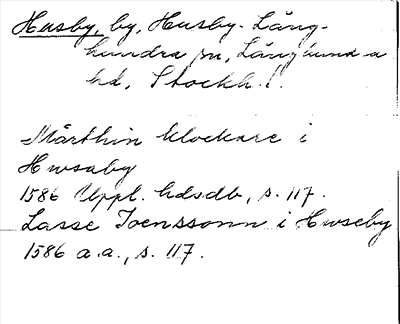 Husby, by, Husby-Lång-
hundra sn, Långhundra
hd, Stockh. l.
Mårthin klockare i
Hwsaby
1586 Uppl. hdsdb, s. 117.
Lasse Joenssonn i Hwseby
1586 a.a., s. 117.